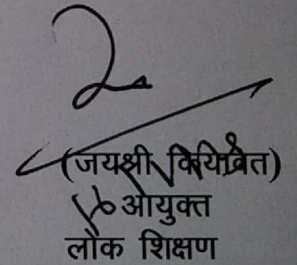 (जयश्री कियावत)
आयुक्त
लोक शिक्षण